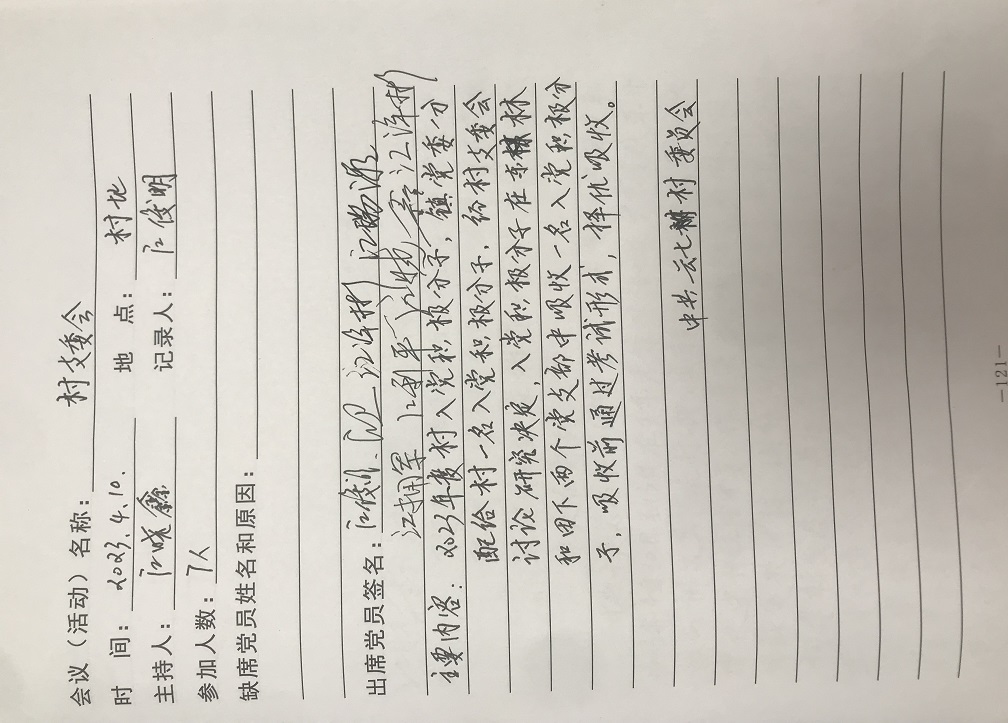 会议（活动）名称： 村支委会
时 间： 2023.4.10. 地 点： 村地
主持人： 江晓鑫 记录人： 江俊明
参加人数： 7人
缺席党员姓名和原因：
出席党员签名： 江俊明
江拥军 江利平
主要内容：2023年度村入党积极分子，镇党委分
配给村一名入党积极分子，给村支委会
讨论研究决定，入党积极分子在东林
和田下两个党支部中吸收一名入党积极分
子，吸收前通过考试形式，择优吸收。
中共云七村委员会
—121—